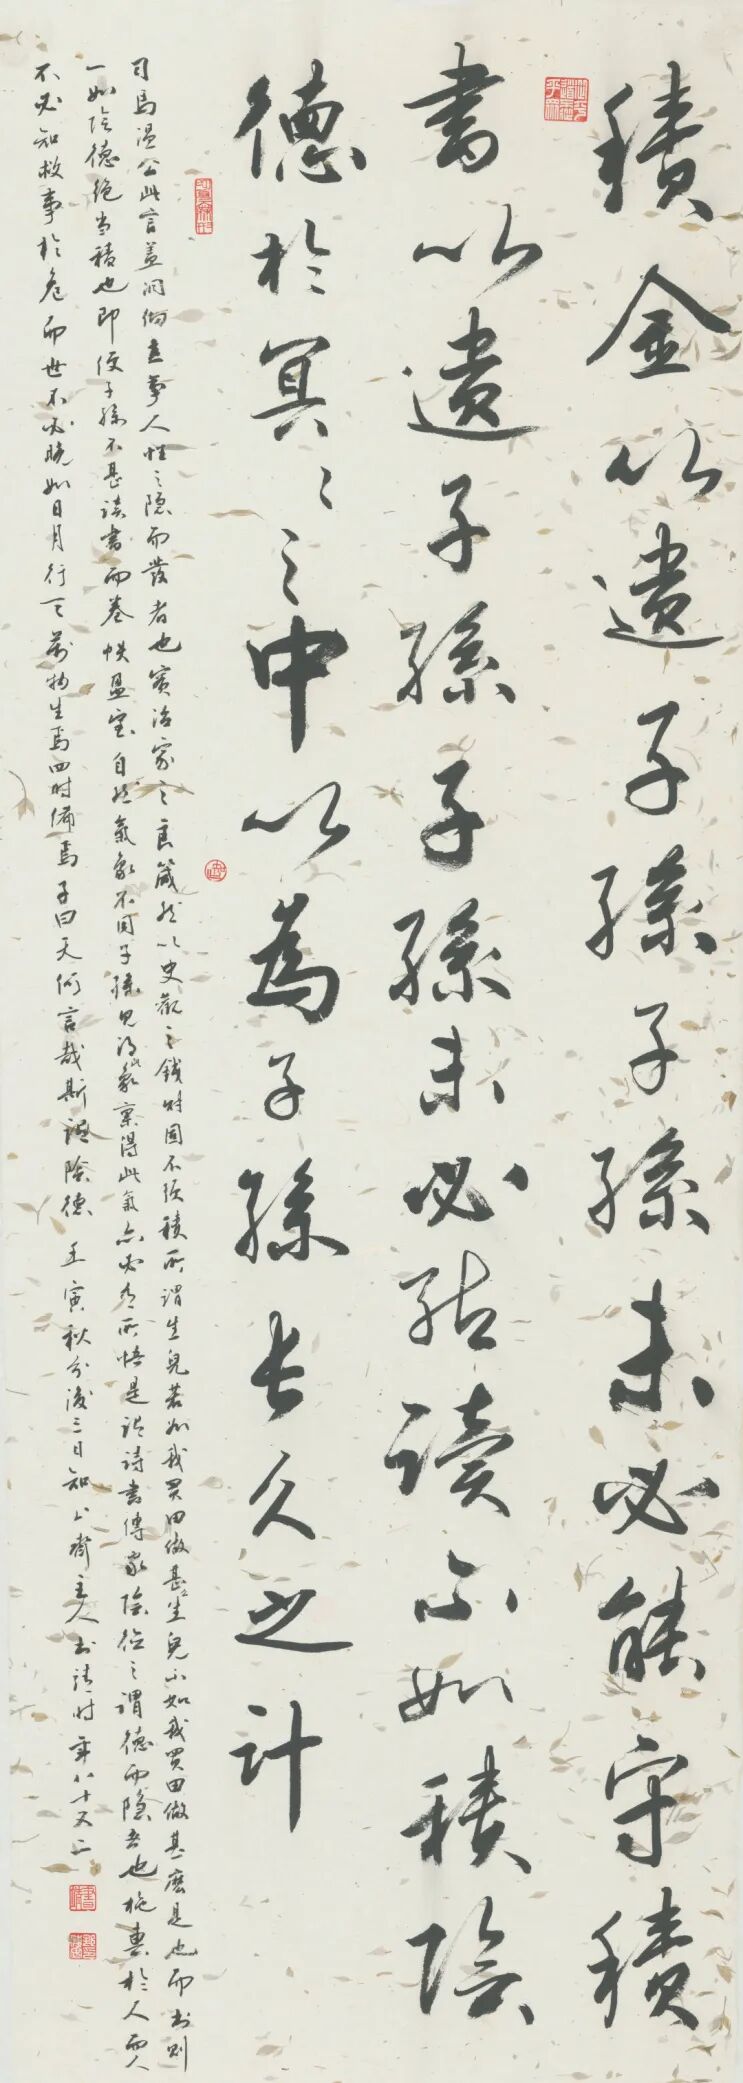 積金以遺子孫子孫未必能守積
書以遺子孫子孫未必能讀不如積陰
德於冥冥之中以為子孫長久之計
司馬溫公此言蓋洞徹世事人性之隱而發者也實治家之良箴然以史觀之錢財固不須積所謂生兒若如我買田做甚生兒不如我買田做甚麼是也而書則
一如陰德絕當積也即使子孫不甚讀書而卷帙盈室自然氣象不同子孫見得此氣象稟得此氣亦必有所悟是謂詩書傳家陰德之謂德而隱者也施惠於人而人
不必知救事於危而世不必曉如日月行天萬物生焉四時備焉子曰天何言哉斯謂陰德 壬寅秋分後三日知止齋主人書 時年八十又二